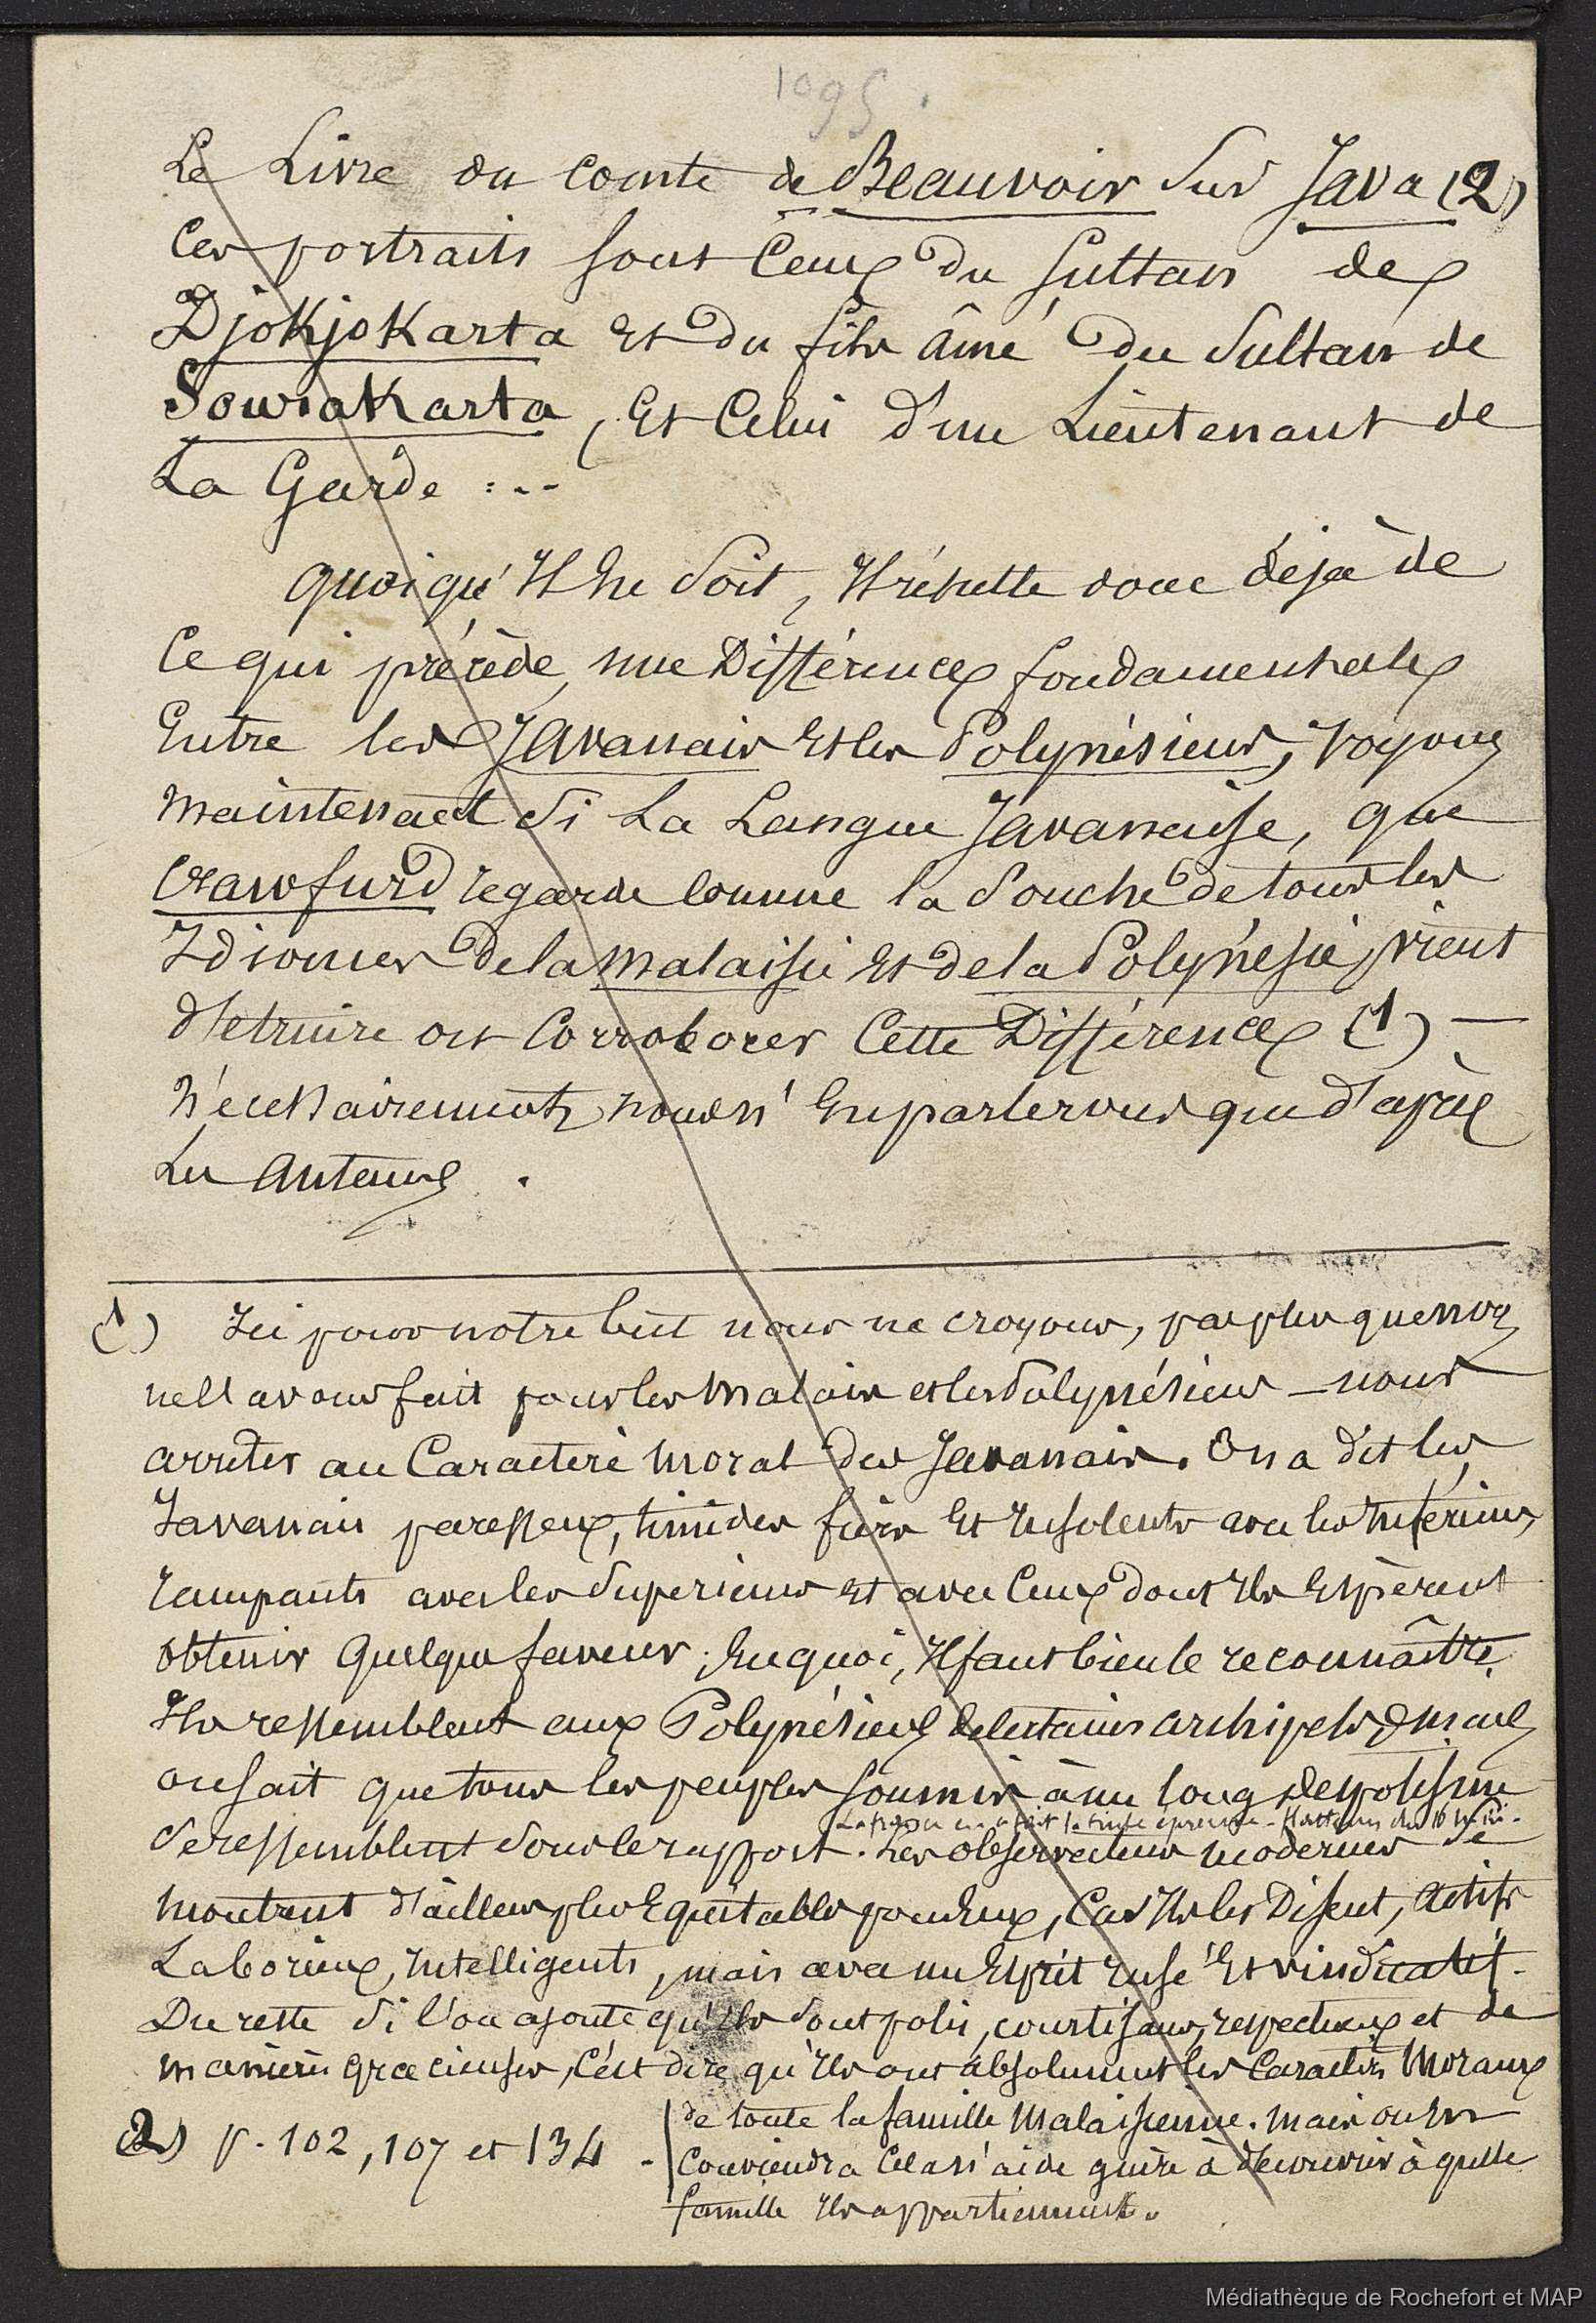 1095.
Le Livre du comte de Beauvoir sur Java (2)
Ces portraits sont Ceux du Sultan de
Djokjokarta et du fils aîné du Sultan de
Sourakarta, Et Celui d'un Lieutenant de
La Garde :--
quoiqu'Il En soit, Il résulte donc déja de
Ce qui précède, une Différence fondamentale
Entre les Javanais Et les Polynésiens, voyons
maintenant si La Langue Javanaise, que
Crawfurd regarde comme la souche de tous les
Idiomes de la malaisie Et de la Polynésie, vient
détruire ou Corroborer Cette Différence (1) —
Nécessairement nous n'En parlerons que d'après
Les Auteurs.
(1) Ici pour notre but nous ne croyons, pas plus que nous
ne l'avons fait pour les Malais et les Polynésiens — nous
arrêter au Caractère moral des Javanais. On a dit les
Javanais paresseux, timides fiers Et Insolents avec les Inférieurs,
rampants avec les Supérieurs Et avec Ceux dont Ils Espèrent
obtenir quelque faveur, En quoi, Il faut bien le reconnaître,
Ils ressemblent aux Polynésiens de certains archipels, mais
on sait que tous les peuples soumis à un long despotisme
se ressemblent sous le rapport. Les observateurs modernes se
La France en a fait la triste épreuve -
montrent d'ailleurs plus Equitables pour Eux, Car Ils les Disent, actifs
Laborieux, Intelligents, mais avec un Esprit rusé Et vindicatif.
Du reste si l'on ajoute qu'Ils sont polis, courtisans, respectueux et de
manières gracieuses, C'est dire qu'Ils ont absolument les Caractères Moraux
de toute la famille Malaisienne. mais on En
Conviendra Cela n'aide guère à découvrir à quelle
famille Ils appartiennent.
(2) p. 102, 107 et 134 -
Médiathèque de Rochefort et MAP